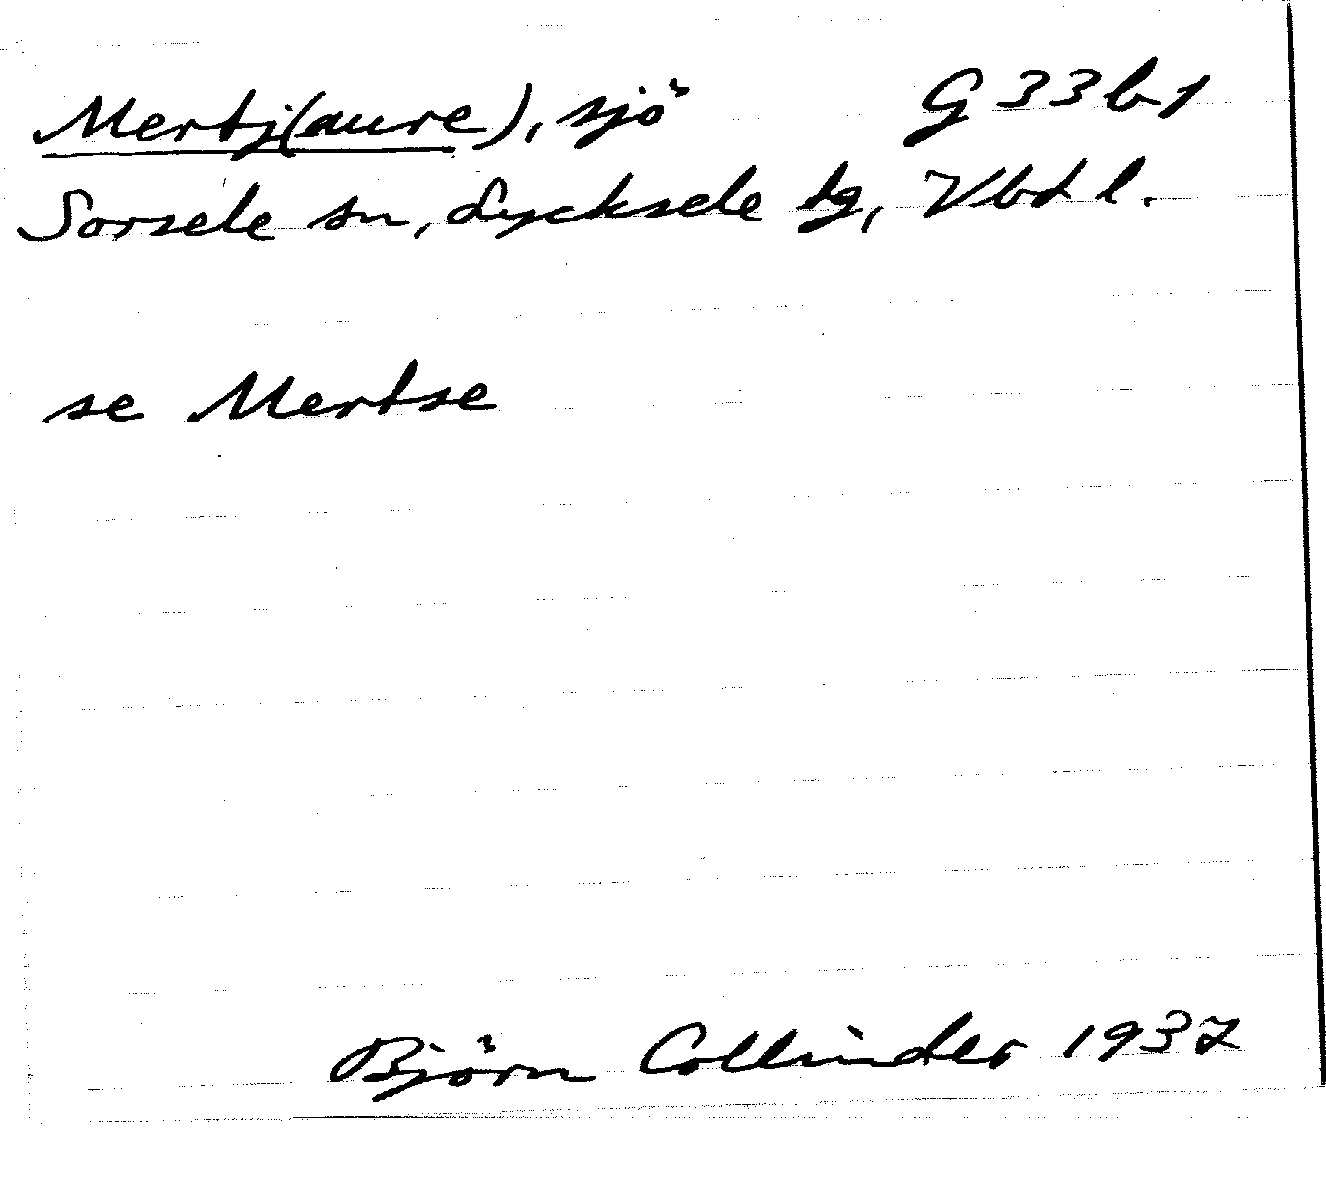 Mertj(aure), sjö G 33 b 1
Sorsele sn, Lycksele tg, Vbt l.
se Mertse
Björn Collinder 1937